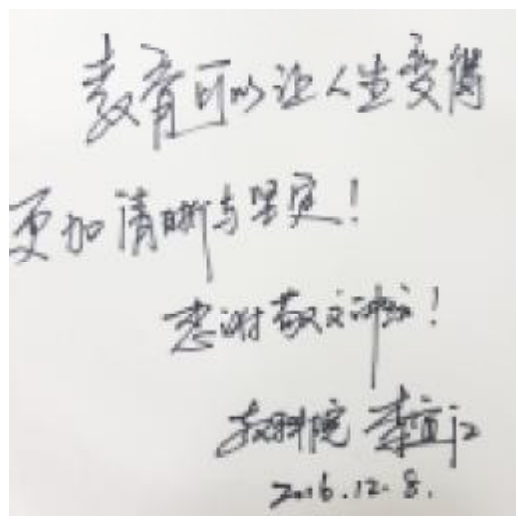 教育可以让人生变得
更加清晰与坚定！
感谢敬文讲坛！
教科院 李宜江
2016.12.8.